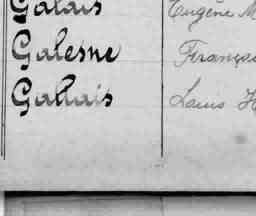 Galais Eugène M
Galesne Françoi
Gallais Louis H